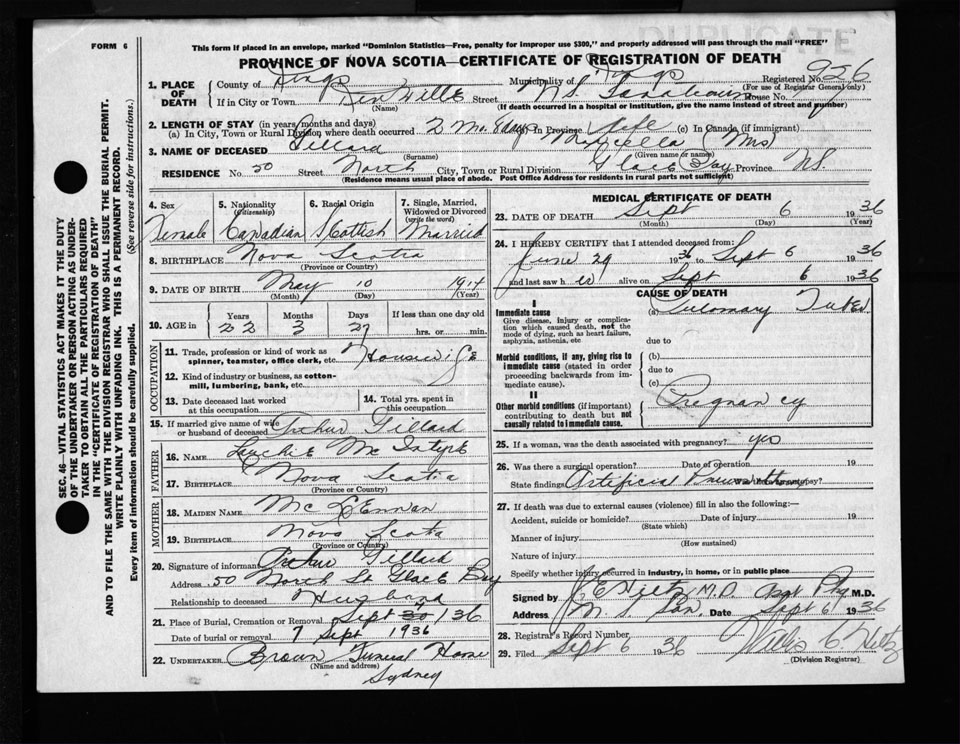 DUPLICATE
FORM 6
This form if placed in an envelope, marked "Dominion Statistics—Free, penalty for improper use $300," and properly addressed will pass through the mail "FREE"
PROVINCE OF NOVA SCOTIA—CERTIFICATE OF REGISTRATION OF DEATH
1. PLACE OF DEATH County of Kings Municipality of Kings Registered No. 926
(For use of Registrar General only)
If in City or Town Kentville Street N.S. Sanatorium House No.
(Name) (If death occurred in a hospital or institution, give the name instead of street and number)
2. LENGTH OF STAY (in years, months and days)
(a) In City, Town or Rural Division where death occurred 2 Mo. 8 days In Province Life (c) In Canada (if immigrant)
3. NAME OF DECEASED Pillard (Mrs)
(Surname) (Given name or names)
RESIDENCE No. 50 Street North City, Town or Rural Division Glace Bay Province NS
(Residence means usual place of abode. Post Office Address for residents in rural parts not sufficient)
4. Sex Female
5. Nationality (Citizenship) Canadian
6. Racial Origin Scottish
7. Single, Married, Widowed or Divorced (write the word) Married
8. BIRTHPLACE Nova Scotia
(Province or Country)
9. DATE OF BIRTH May 10 1914
(Month) (Day) (Year)
10. AGE in Years Months Days If less than one day old
22 3 27 hrs. or min.
OCCUPATION
11. Trade, profession or kind of work as spinner, teamster, office clerk, etc. Housewife
12. Kind of industry or business, as cotton-mill, lumbering, bank, etc.
13. Date deceased last worked at this occupation
14. Total yrs. spent in this occupation
15. If married give name of wife or husband of deceased Arthur Pillard
FATHER
16. NAME Lauchie McIntyre
17. BIRTHPLACE Nova Scotia
(Province or Country)
MOTHER
18. MAIDEN NAME McLennan
19. BIRTHPLACE Nova Scotia
(Province or Country)
20. Signature of informant Arthur Pillard
Address 50 North St Glace Bay
Relationship to deceased Husband
21. Place of Burial, Cremation or Removal Sept 30/36
Date of burial or removal 7 Sept 1936
22. UNDERTAKER Brown Funeral Home
(Name and address)
Sydney
MEDICAL CERTIFICATE OF DEATH
23. DATE OF DEATH Sept 6 1936
(Month) (Day)
24. I HEREBY CERTIFY that I attended deceased from:
June 29 1936 to Sept 6 1936
and last saw h er alive on Sept 6 1936
CAUSE OF DEATH
I
Immediate cause (a) Pulmonary Tuberc.
Give disease, injury or complication which caused death, not the mode of dying, such as heart failure, asphyxia, asthenia, etc
due to
Morbid conditions, if any, giving rise to immediate cause (stated in order proceeding backwards from immediate cause).
(b)
due to
(c)
II
Other morbid conditions (if important) contributing to death but not causally related to immediate cause.
Pregnancy
25. If a woman, was the death associated with pregnancy? yes
26. Was there a surgical operation? Date of operation 19
State findings Artificial Was there an autopsy?
27. If death was due to external causes (violence) fill in also the following:—
Accident, suicide or homicide? Date of injury 19
(State which)
Manner of injury
(How sustained)
Nature of injury
Specify whether injury occurred in industry, in home, or in public place
Signed by J. E. Hiltz, M.D. Asst Phy M.D.
Address N. S. San. Date Sept 6 1936
28. Registrar's Record Number
29. Filed Sept 6 1936
(Division Registrar)
SEC. 46—VITAL STATISTICS ACT MAKES IT THE DUTY
OF THE UNDERTAKER OR PERSON ACTING AS UNDER-
TAKER TO OBTAIN ALL THE PARTICULARS REQUIRED
IN THE "CERTIFICATE OF REGISTRATION OF DEATH"
AND TO FILE THE SAME WITH THE DIVISION REGISTRAR WHO SHALL ISSUE THE BURIAL PERMIT.
WRITE PLAINLY WITH UNFADING INK. THIS IS A PERMANENT RECORD.
Every item of information should be carefully supplied.
(See reverse side for instructions.)